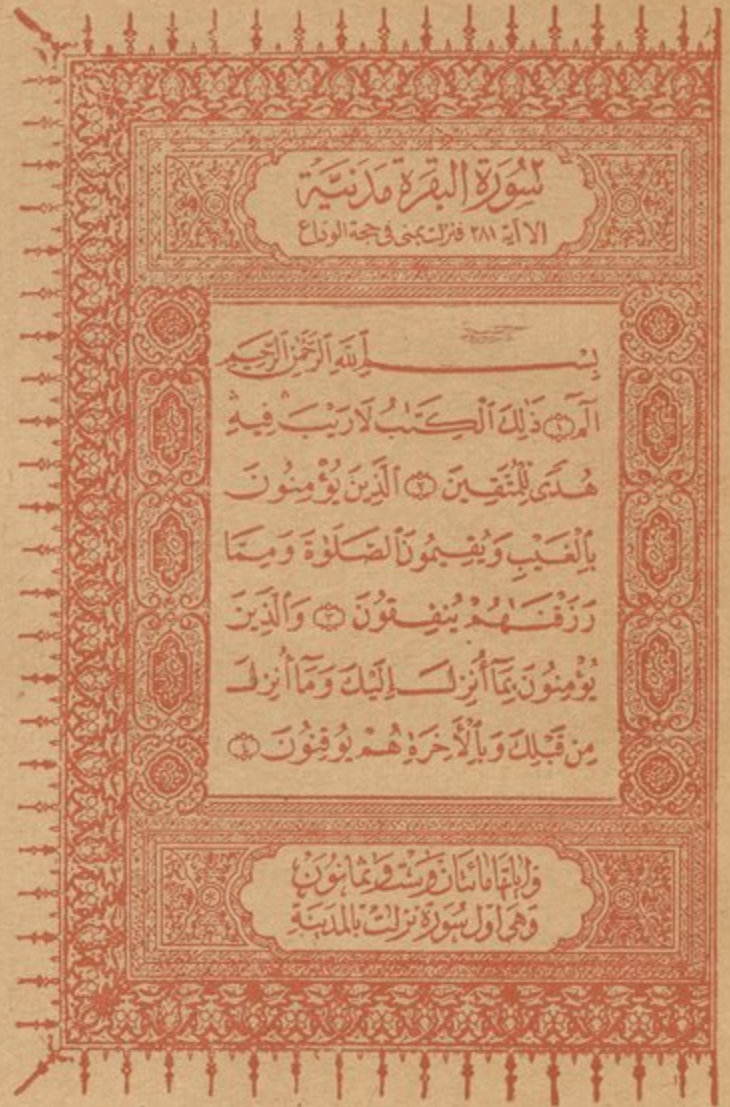 سُورَة البَقَرَة مَدَنِيَّة
الا آية ٢٨١ فنزلت بمنى في حجة الوداع
بِسْــمِ ٱللَّهِ ٱلرَّحْمَٰنِ ٱلرَّحِيمِ
الٓمٓ ۝١ ذَٰلِكَ ٱلْكِتَٰبُ لَا رَيْبَ ۛ فِيهِ ۛ
هُدًى لِّلْمُتَّقِينَ ۝٢ ٱلَّذِينَ يُؤْمِنُونَ
بِٱلْغَيْبِ وَيُقِيمُونَ ٱلصَّلَوٰةَ وَمِمَّا
رَزَقْنَٰهُمْ يُنفِقُونَ ۝٣ وَٱلَّذِينَ
يُؤْمِنُونَ بِمَآ أُنزِلَ إِلَيْكَ وَمَآ أُنزِلَ
مِن قَبْلِكَ وَبِٱلْأَخِرَةِ هُمْ يُوقِنُونَ ۝٤
وآياتها مائتان وست وثمانون
وهي أول سورة نزلت بالمدينة